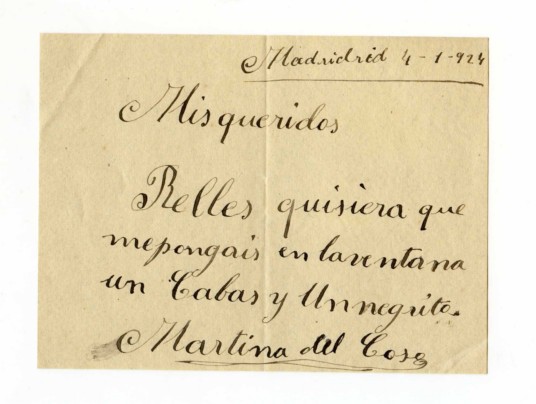 Madridrid 4-1-924
Misqueridos
Relles quisiera que
mepongais en laventana
un Cabas y Unnegrito.
Martina del Coso